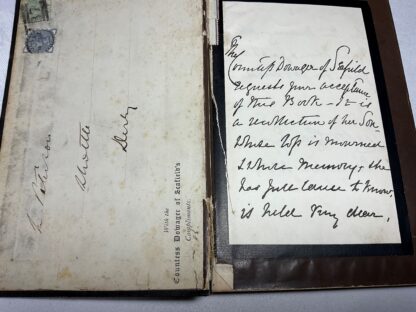 Peterson
Shotts
With the
Countess Dowager of Seafield's
Compliments.
The
Countess Dowager of Seafield
requests your acceptance
of this Book – It is
a recollection of her Son
whose loss is mourned
& whose Memory, she
has full cause to know,
is held very dear,